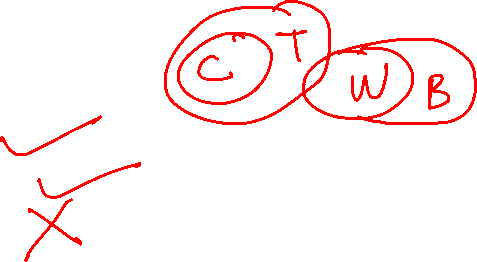 C T W B
✓
✓
X